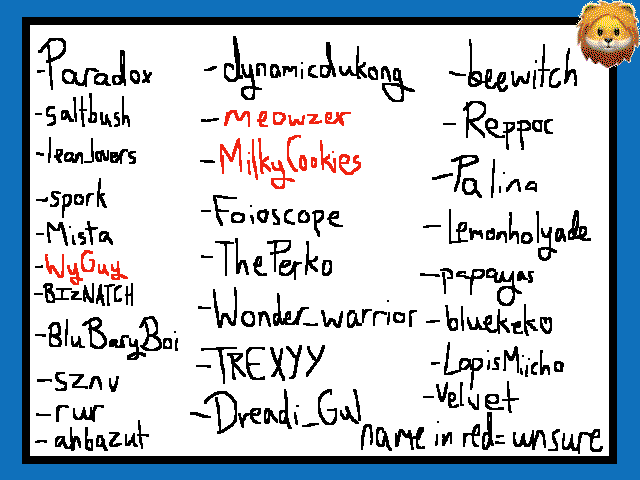 -Paradox
-saltbush
-lean_lovers
-spork
-Mista
-WyGuy
-BIZNATCH
-BluBaryBoi
-sznv
-rur
-ahbazut
-dynamicdukong
-meowzer
-MilkyCookies
-Foioscope
-ThePerko
-Wonder_warrior
-TREXYY
-Dreadi_Gul
-beewitch
-Reppoc
-Palina
-Lemonholyade
-papayas
-bluekeko
-LopisMiicho
-Velvet
name in red = unsure